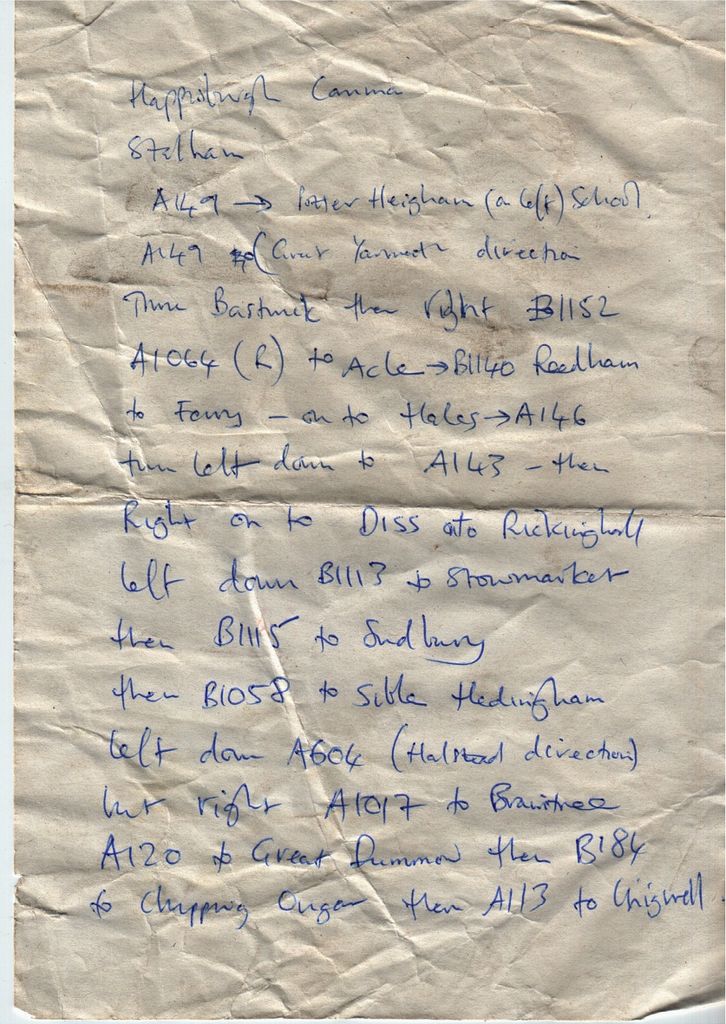 Happisburgh
Stalham
A149 → Potter Heigham (on left) School.
A149 (Great Yarmouth direction
Thru Bastwick then right B1152
A1064 (R) to Acle → B1140 Reedham
to Ferry - on to Hales → A146
turn left down to A143 - then
Right on to Diss into Rickinghall
left down B1113 to Stowmarket
then B1115 to Sudbury
then B1058 to Sible Hedingham
left down A604 (Halstead direction)
but right A1017 to Braintree
A120 to Great Dunmow then B184
to Chipping Ongar then A113 to Chigwell.